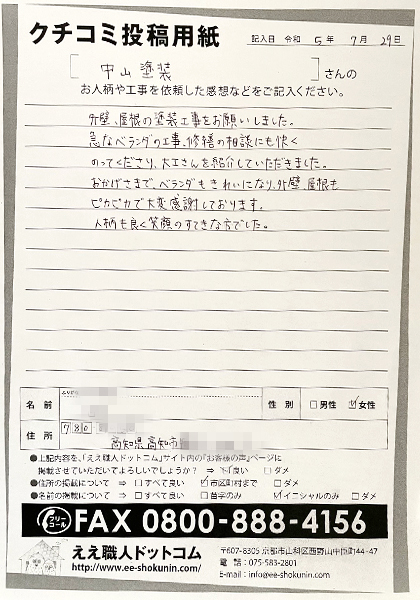 クチコミ投稿用紙
記入日 令和 5年 7月 29日
[ 中山塗装 ]さんの
お人柄や工事を依頼した感想などをご記入ください。
外壁、屋根の塗装工事をお願いしました。
急なベランダの工事、修繕の相談にも快く
のってくださり、大工さんを紹介していただきました。
おかげさまで、ベランダもきれいになり、外壁、屋根も
ピカピカで大変感謝しております。
人柄も良く笑顔のすてきな方でした。
ふりがな
名前 性別 □男性 ☑女性
住所 780
高知県高知市
●上記内容を、「ええ職人ドットコム」サイト内の「お客様の声」ページに
掲載させていただいてよろしいでしょうか? ⇒ ☑良い □ダメ
●住所の掲載について ⇒ □すべて良い ☑市区町村まで □ダメ
●名前の掲載について ⇒ □すべて良い □苗字のみ ☑イニシャルのみ □ダメ
フリーコール FAX 0800-888-4156
ええ職人ドットコム
http://www.ee-shokunin.com/
〒607-8305 京都市山科区西野山中臣町44-47
電話:075-583-2801
E-mail:info@ee-shokunin.com